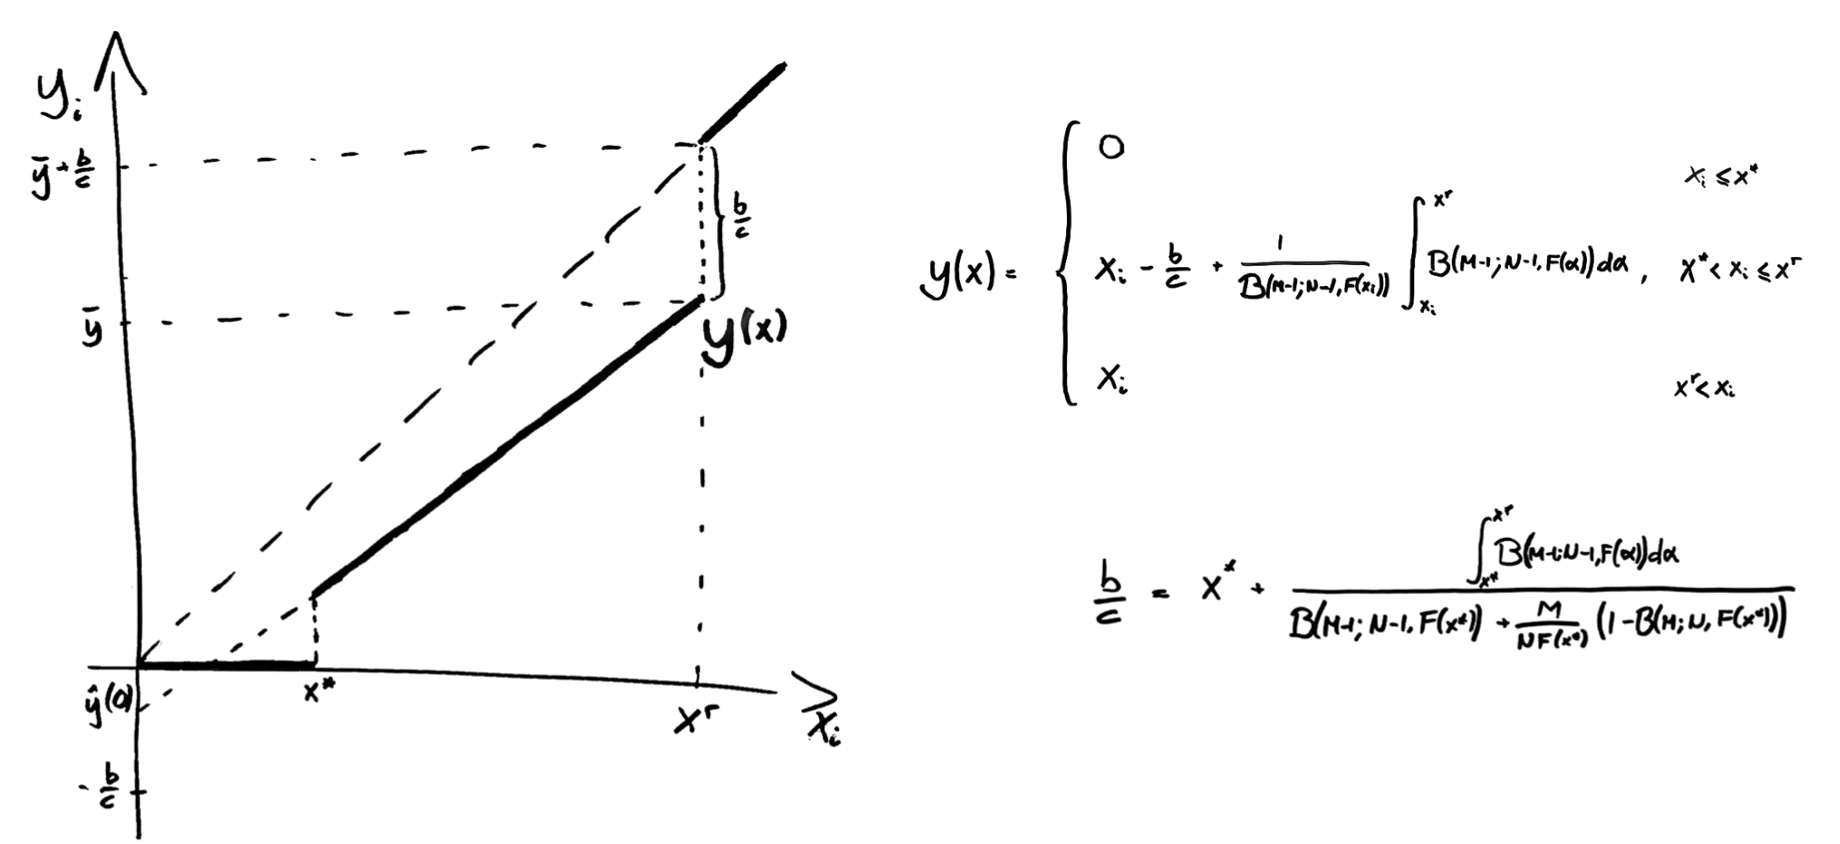 yᵢ
ȳ + b/c
b/c
ȳ
y(x)
ŷ(0)
x*
xʳ
xᵢ
- b/c
y(x) = { 0 xᵢ ≤ x*
xᵢ - b/c + 1/B(M-1; N-1, F(xᵢ)) ∫_{xᵢ}^{xʳ} B(M-1; N-1, F(α)) dα , x* < xᵢ ≤ xʳ
xᵢ xʳ < xᵢ
b/c = x* + ∫_{x*}^{xʳ} B(M-1; N-1, F(α)) dα / B(M-1; N-1, F(x*)) + M/NF(x*) (1 - B(M; N, F(x*)))